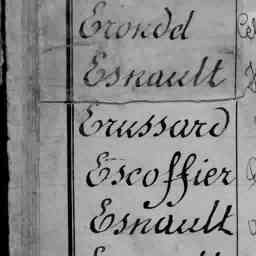 Erondel
Esnault
Erussard
Escoffier
Esnault